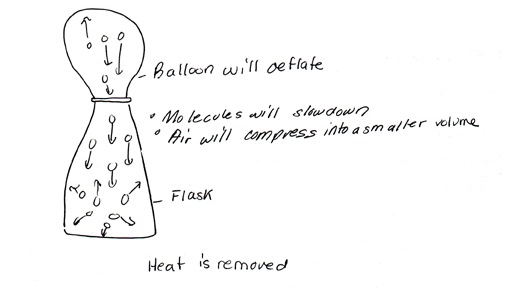 Balloon will deflate
• Molecules will slowdown
• Air will compress into a smaller volume
Flask
Heat is removed